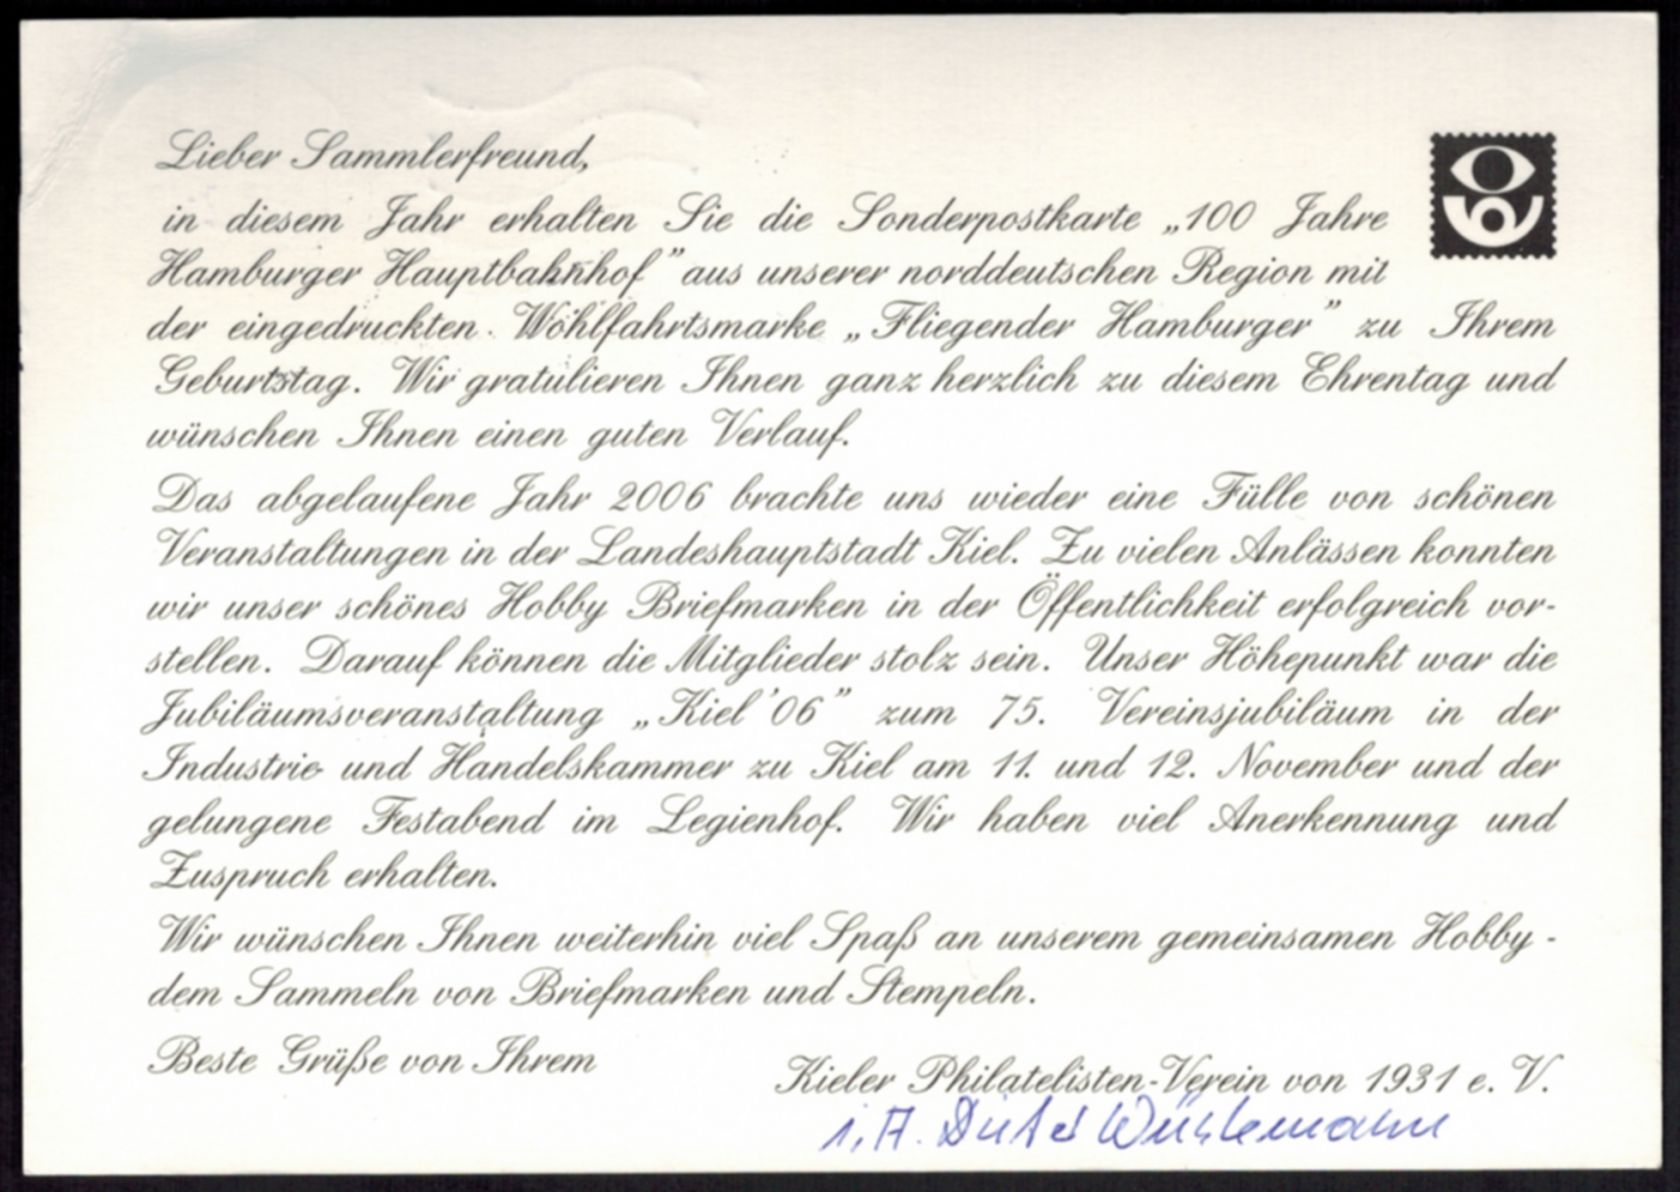 Lieber Sammlerfreund,
in diesem Jahr erhalten Sie die Sonderpostkarte „100 Jahre
Hamburger Hauptbahnhof” aus unserer norddeutschen Region mit
der eingedruckten Wohlfahrtsmarke „Fliegender Hamburger” zu Ihrem
Geburtstag. Wir gratulieren Ihnen ganz herzlich zu diesem Ehrentag und
wünschen Ihnen einen guten Verlauf.
Das abgelaufene Jahr 2006 brachte uns wieder eine Fülle von schönen
Veranstaltungen in der Landeshauptstadt Kiel. Zu vielen Anlässen konnten
wir unser schönes Hobby Briefmarken in der Öffentlichkeit erfolgreich vor-
stellen. Darauf können die Mitglieder stolz sein. Unser Höhepunkt war die
Jubiläumsveranstaltung „Kiel ’06” zum 75. Vereinsjubiläum in der
Industrie- und Handelskammer zu Kiel am 11. und 12. November und der
gelungene Festabend im Legienhof. Wir haben viel Anerkennung und
Zuspruch erhalten.
Wir wünschen Ihnen weiterhin viel Spaß an unserem gemeinsamen Hobby -
dem Sammeln von Briefmarken und Stempeln.
Beste Grüße von Ihrem
Kieler Philatelisten-Verein von 1931 e. V.
i. A. Dieter